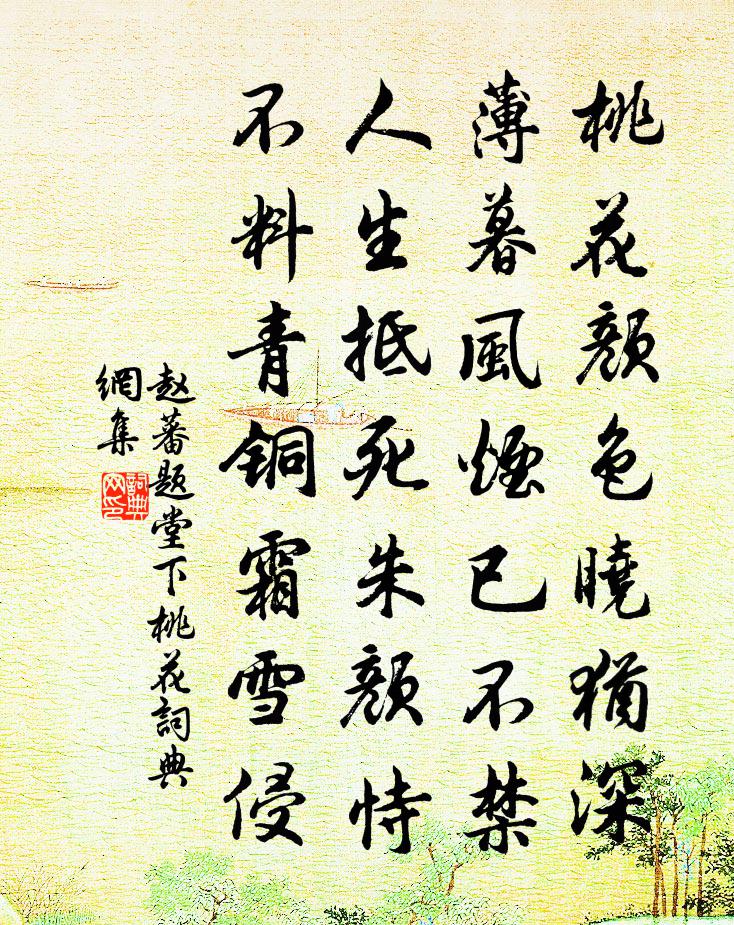 桃花颜色曉猶深
薄暮風煙已不禁
人生抵死朱颜恃
不料青铜霜雪侵
赵蕃题堂下桃花詞典
網集
詞典
网印